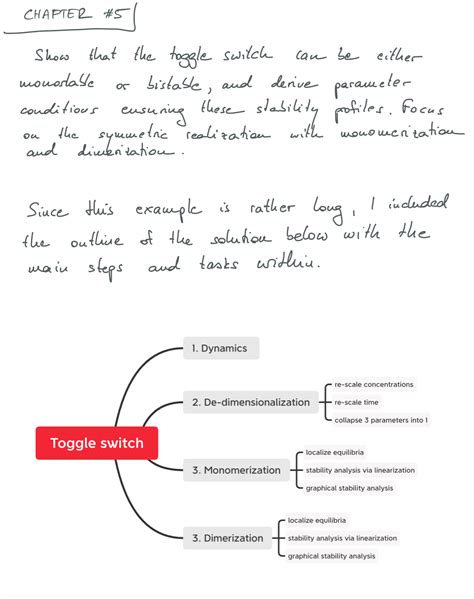 CHAPTER #5
Show that the toggle switch can be either
monostable or bistable, and derive parameter
conditions ensuring these stability profiles. Focus
on the symmetric realization with monomerization
and dimerization.
Since this example is rather long, I included
the outline of the solution below with the
main steps and tasks within.
Toggle switch
1. Dynamics
2. De-dimensionalization
re-scale concentrations
re-scale time
collapse 3 parameters into 1
3. Monomerization
localize equilibria
stability analysis via linearization
graphical stability analysis
3. Dimerization
localize equilibria
stability analysis via linearization
graphical stability analysis